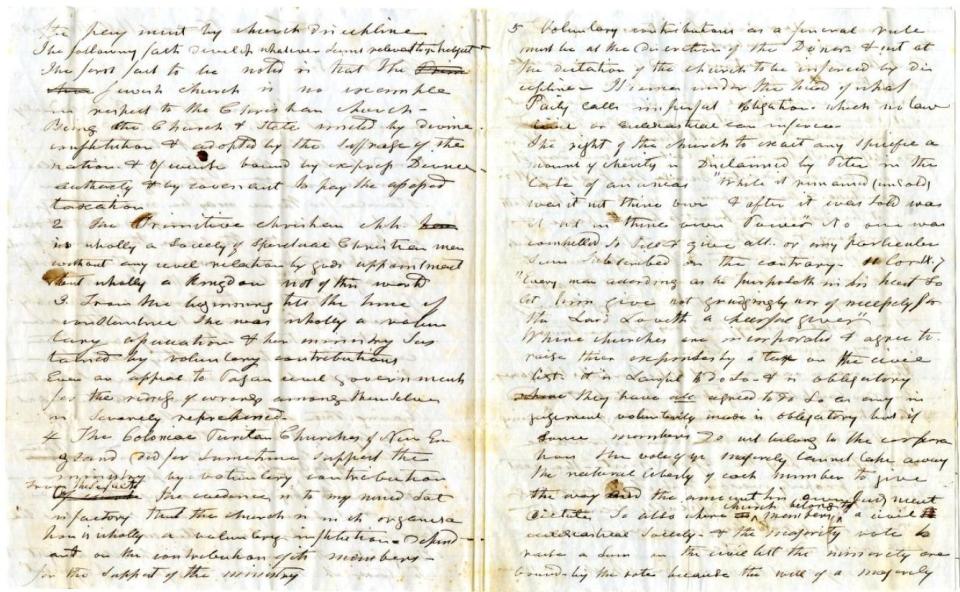 the payment by church discipline
The following facts develop whatever seems relevant to ye subject
The first fact to be noted is that The
Jewish church is no example
in respect to the Christian church -
Being the Church & State united by divine
constitution & adopted by the suffrage of the
nation & of course bound by express Divine
authority & by covenant to pay the assessed
taxation
2 The Primitive christian chh
is wholly a Society of Spiritual Christian men
without any civil relation by gods appointment
but wholly a Kingdom not of this world
3. From the beginning till the time of
constantine She was wholly a volun
tary association & her ministry sus
tained by voluntary contributions
Even an appeal to Pagan civil government
for the righting of wrongs among themselves
is severely reprehended.
4 The Colonial Puritan Churches of New En
gland did for sometime support the
ministry by voluntary contribution
From these facts
The evidence is to my mind sat
isfactory that the church in its organiza
tion is wholly a voluntary institution - depend
ant on the contribution of its members -
for the support of the ministry
5 Voluntary contributions as a general rule
must be at the discretion of the Donors & not at
the dictation of the church to be inforced by dis
cipline - It comes under the head of what
Paily calls imperfect obligation which no law
civil or ecclesiastical can inforce -
The right of the church to exact any specific a
mount of charity is Disclaimed by Peter in the
Case of ananias "While it remained (unsold)
was it not thine own & after it was sold was
it not in thine own Power" No one was
compelled to Sell & give all. or any particular
Sum Subscribed on the contrary. 11 Cor IX. 7
"Every man according as he purposeth in his heart So
let him give not grudgingly nor of necessity for
the Lord Loveth a cheerful giver"
Where churches are incorporated & agree to
raise their expenses by a tax on the civil
list. it is Lawful to do So & is obligatory
they have all agreed to do So as any in
gagement voluntarily made is obligatory but if
Some members Do not belong to the corpora
tion The vote of ye majority cannot take away
the natural liberty of each member to give
the way and the amount his own judgment
Dictates So also where church members belong to a civil
ecclesiastical Society - & the majority vote to
raise a Sum on the civil list the minority are
bound by the vote because the will of a majority